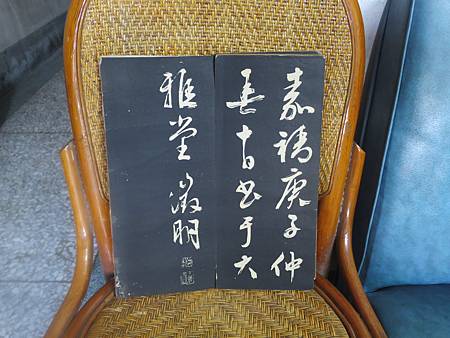 嘉靖庚子仲
春十日書于大
雅堂 徵明